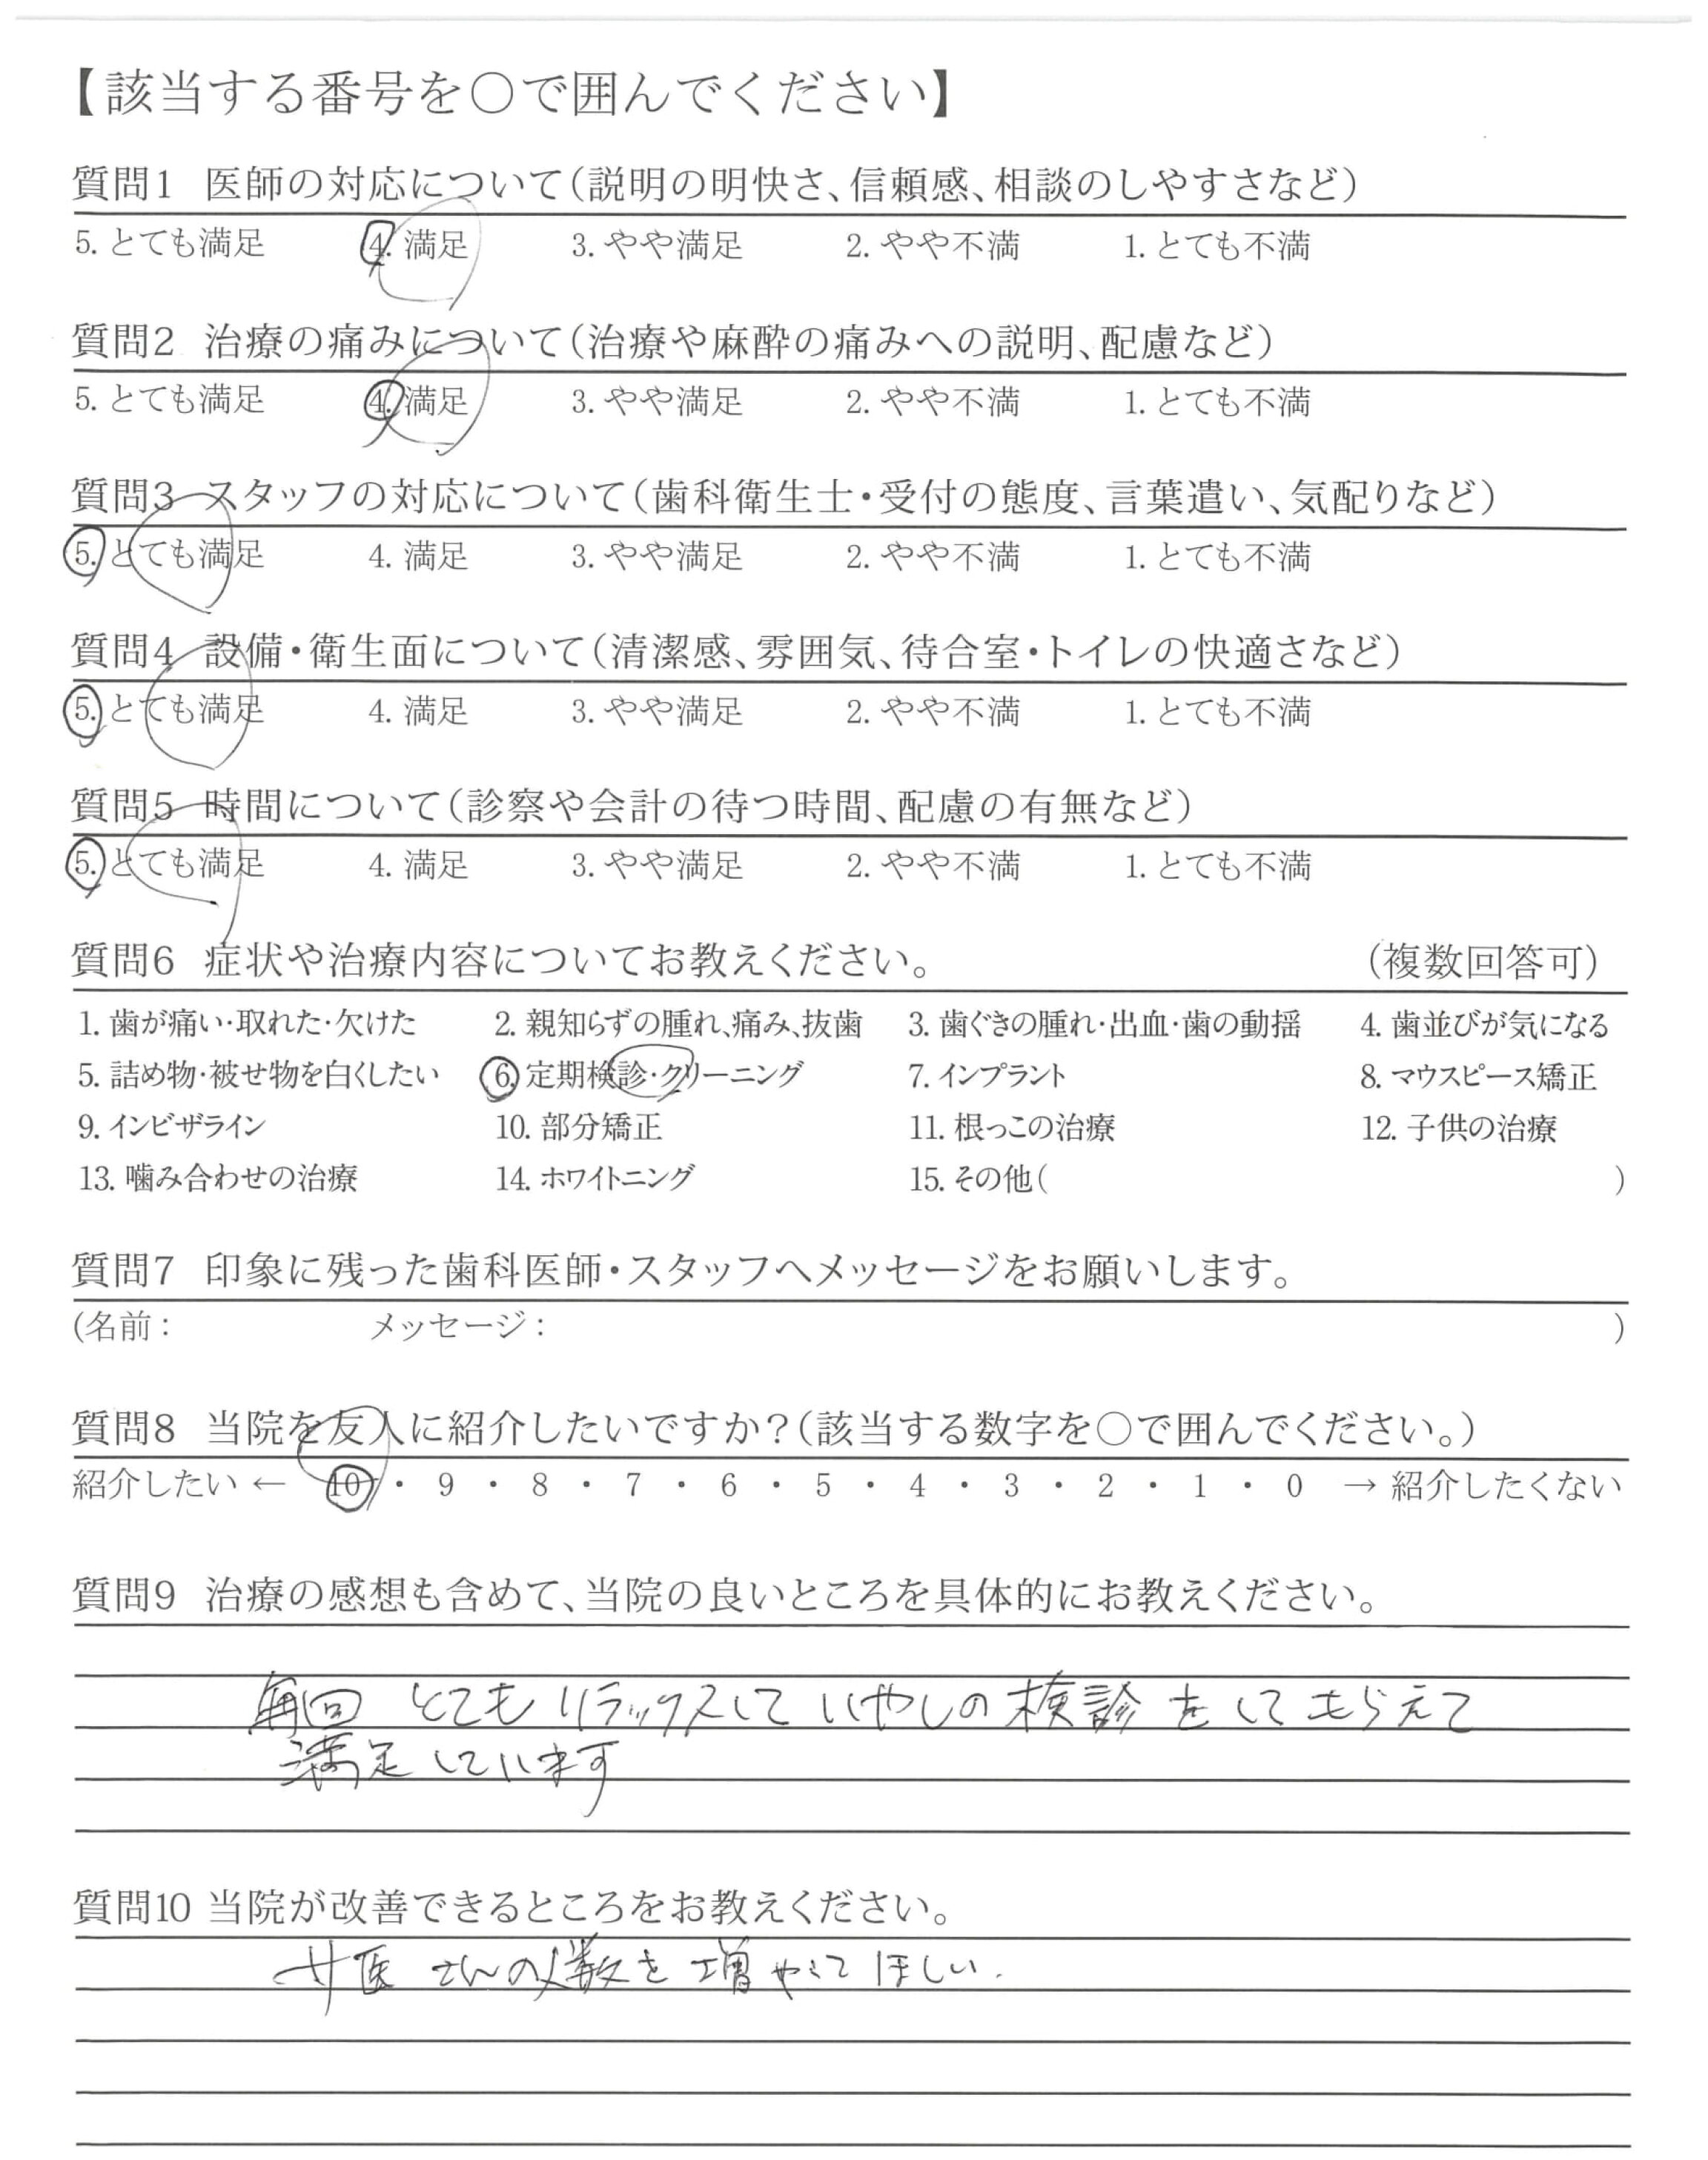 【該当する番号を○で囲んでください】
質問1 医師の対応について(説明の明快さ、信頼感、相談のしやすさなど)
5. とても満足 4. 満足 3. やや満足 2. やや不満 1. とても不満
質問2 治療の痛みについて(治療や麻酔の痛みへの説明、配慮など)
5. とても満足 4. 満足 3. やや満足 2. やや不満 1. とても不満
質問3 スタッフの対応について(歯科衛生士・受付の態度、言葉遣い、気配りなど)
5. とても満足 4. 満足 3. やや満足 2. やや不満 1. とても不満
質問4 設備・衛生面について(清潔感、雰囲気、待合室・トイレの快適さなど)
5. とても満足 4. 満足 3. やや満足 2. やや不満 1. とても不満
質問5 時間について(診察や会計の待つ時間、配慮の有無など)
5. とても満足 4. 満足 3. やや満足 2. やや不満 1. とても不満
質問6 症状や治療内容についてお教えください。 (複数回答可)
1. 歯が痛い・取れた・欠けた 2. 親知らずの腫れ、痛み、抜歯 3. 歯ぐきの腫れ・出血・歯の動揺 4. 歯並びが気になる
5. 詰め物・被せ物を白くしたい 6. 定期検診・クリーニング 7. インプラント 8. マウスピース矯正
9. インビザライン 10. 部分矯正 11. 根っこの治療 12. 子供の治療
13. 噛み合わせの治療 14. ホワイトニング 15. その他( )
質問7 印象に残った歯科医師・スタッフへメッセージをお願いします。
(名前: メッセージ: )
質問8 当院を友人に紹介したいですか?(該当する数字を○で囲んでください。)
紹介したい ← 10 ・ 9 ・ 8 ・ 7 ・ 6 ・ 5 ・ 4 ・ 3 ・ 2 ・ 1 ・ 0 → 紹介したくない
質問9 治療の感想も含めて、当院の良いところを具体的にお教えください。
毎回 とても リラックスして いやしの 検診 をして もらえて
満足しています
質問10 当院が改善できるところをお教えください。
女医さんの人数を増やして ほしい.